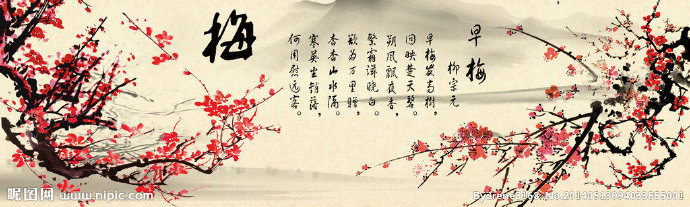 梅
早梅
柳宗元
早梅发高树，
回映楚天碧。
朔风飘夜香，
繁霜滋晓白。
欲为万里赠，
杳杳山水隔。
寒英坐销落，
何用慰远客。
昵图网 www.nipic.com